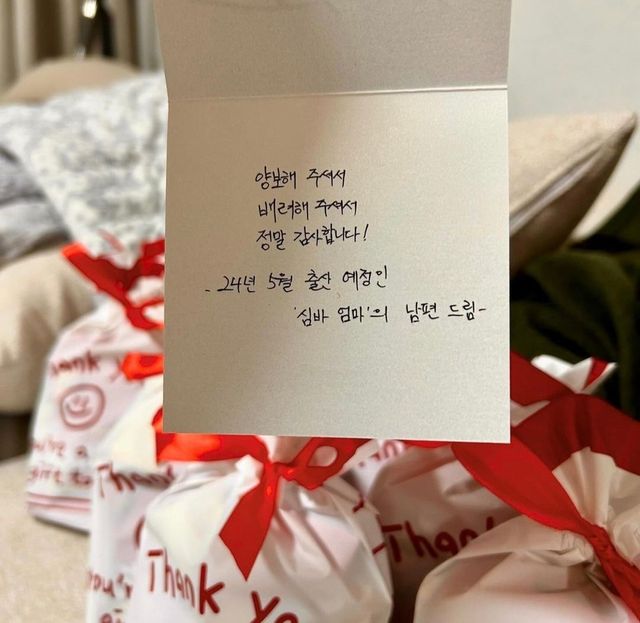 양보해 주셔서
배려해 주셔서
정말 감사합니다!
- 24년 5월 출산 예정인
'심바 엄마'의 남편 드림-
Thank
you're a
Thank
you'r
Thank Yo
Thank